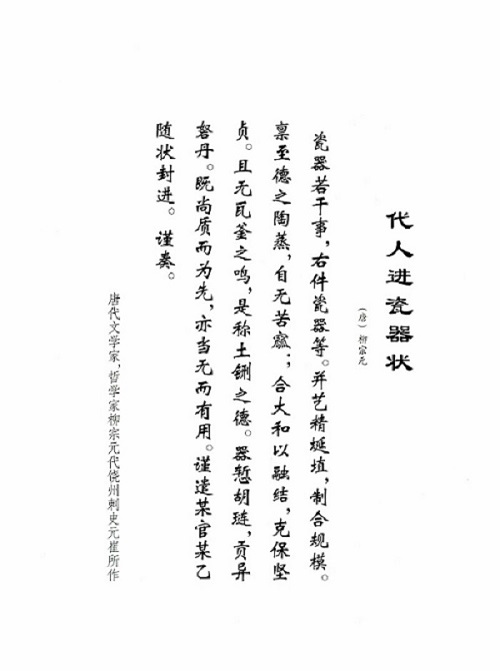 代人进瓷器状
（唐）柳宗元
瓷器若干事，右件瓷器等。并艺精埏埴，制合规模。
禀至德之陶蒸，自无苦窳；合大和以融结，克保坚
贞。且无瓦釜之鸣，是称土铏之德。器慙胡琏，贡异
砮丹。既尚质而为先，亦当无而有用。谨遣某官某乙
随状封进。谨奏。
唐代文学家，哲学家柳宗元代饶州刺史元崔所作